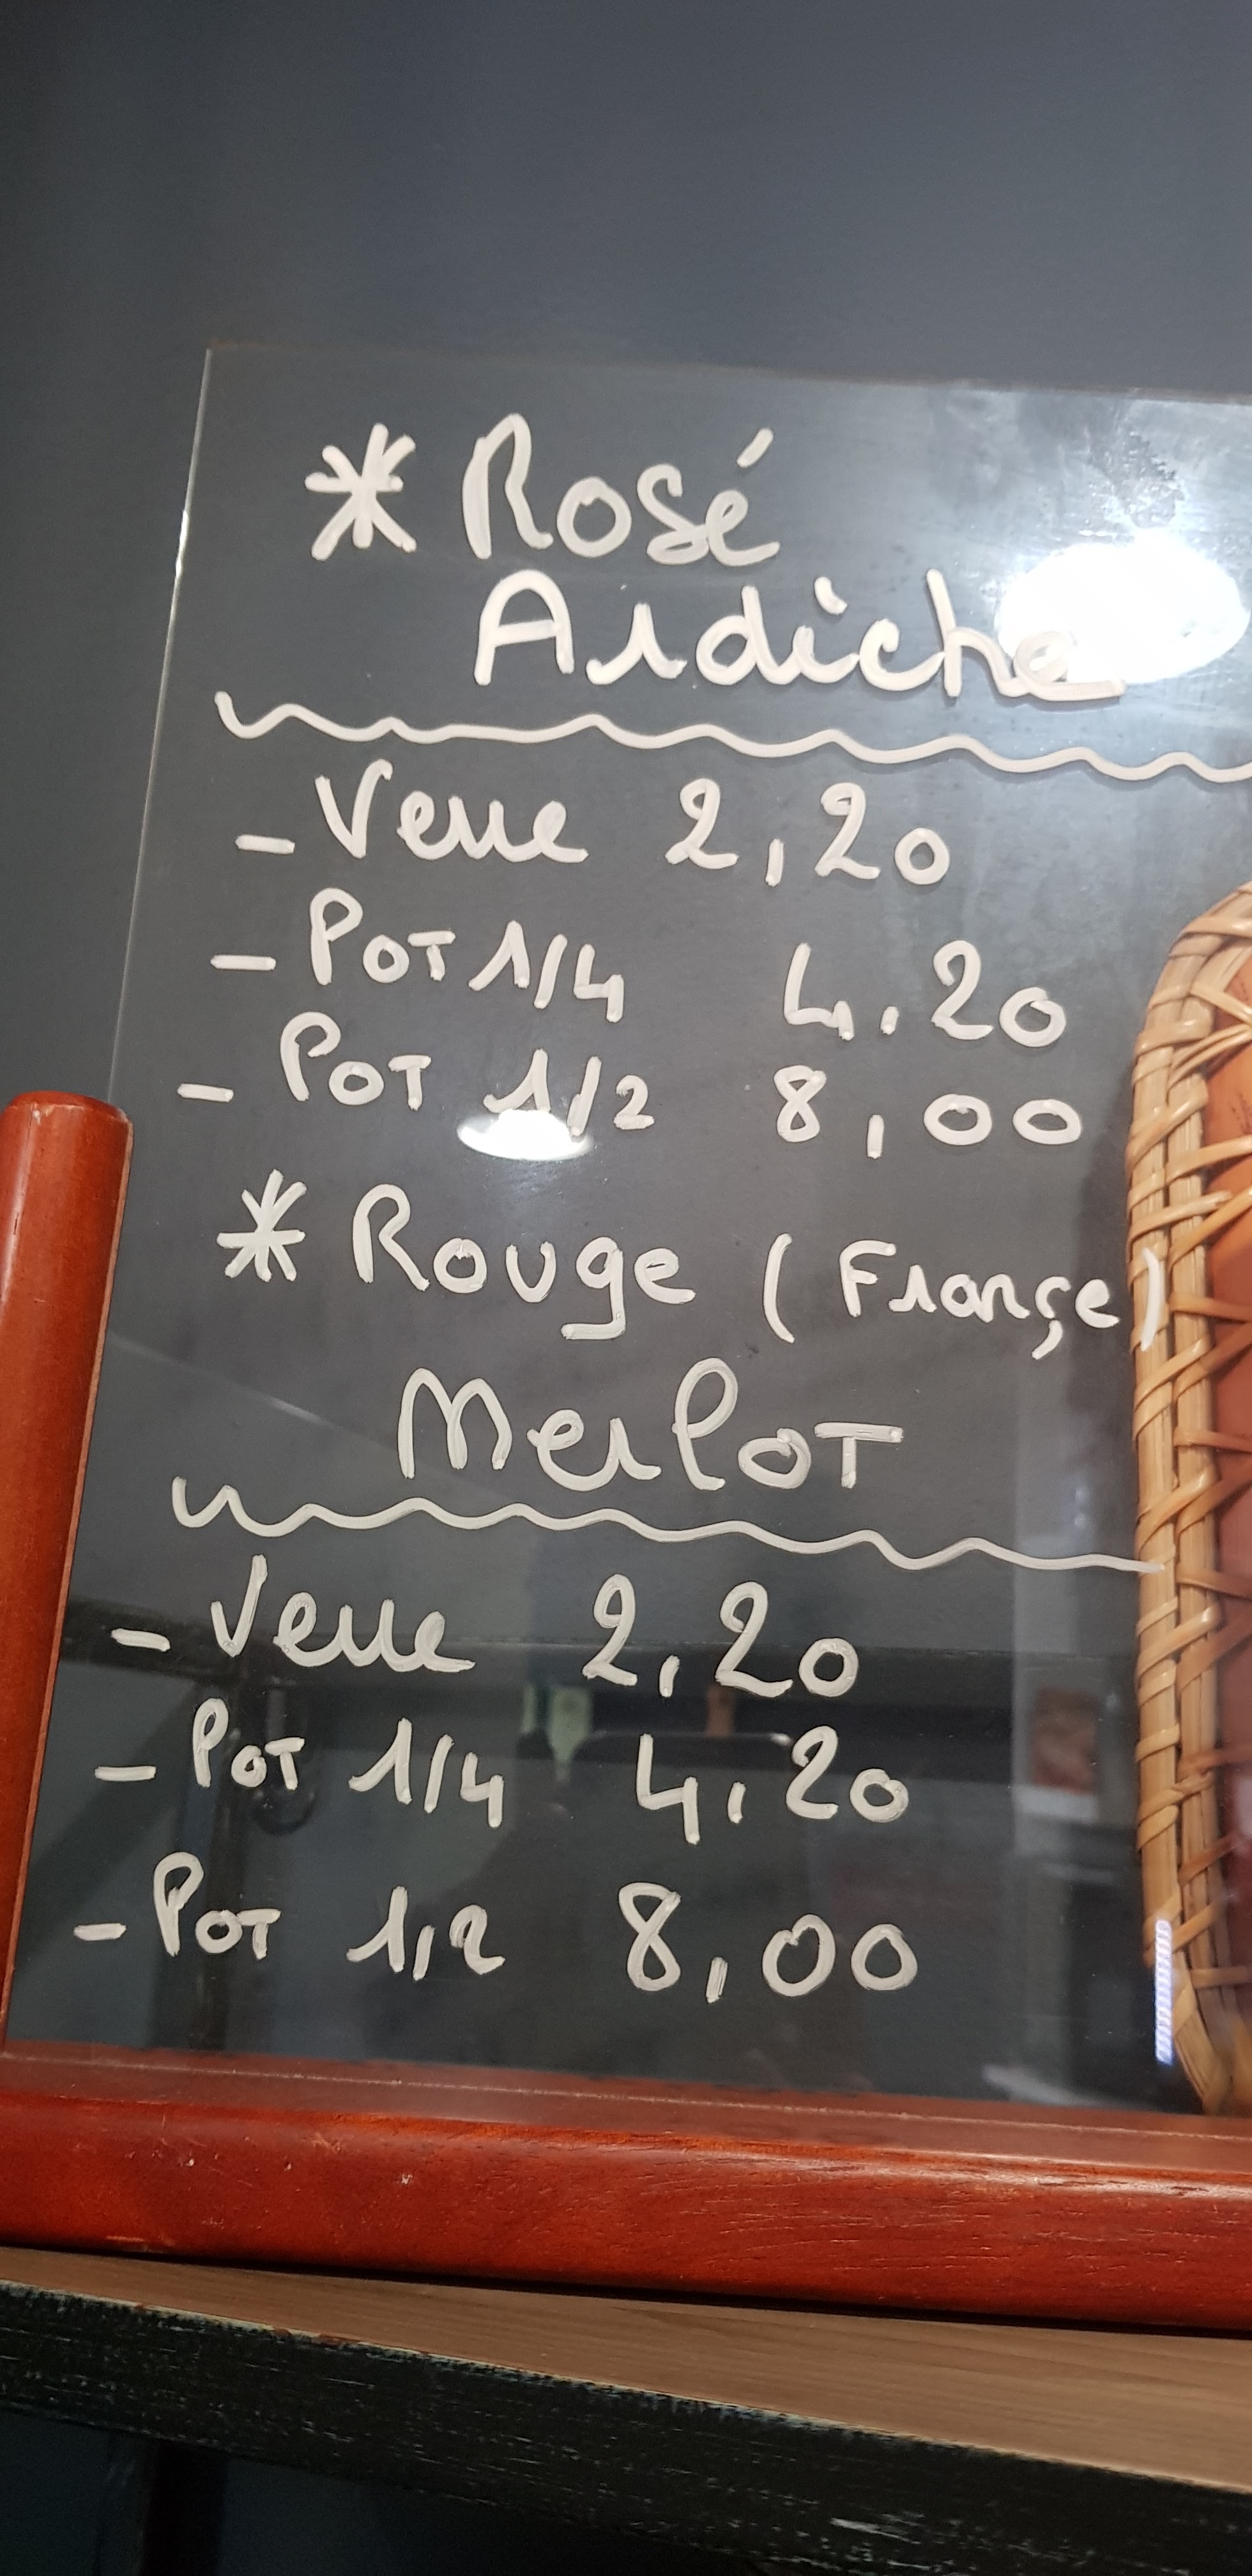 * Rosé
Ardèche
- Verre 2,20
- Pot 1/4 4,20
- Pot 1/2 8,00
* Rouge (Françe)
Merlot
- Verre 2,20
- Pot 1/4 4,20
- Pot 1,2 8,00